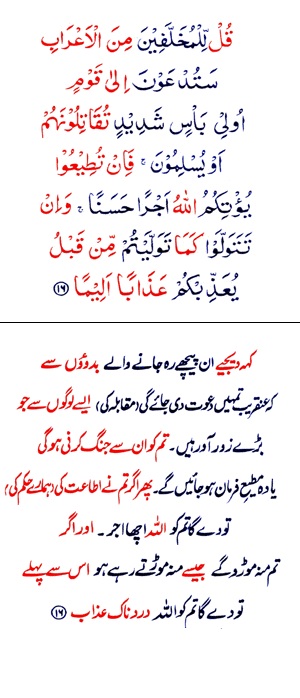 قُلْ لِّلْمُخَلَّفِيْنَ مِنَ الْاَعْرَابِ
سَتُدْعَوْنَ اِلٰى قَوْمٍ
اُولِيْ بَاْسٍ شَدِيْدٍ تُقَاتِلُوْنَهُمْ
اَوْ يُسْلِمُوْنَ ۚ فَاِنْ تُطِيْعُوْا
يُؤْتِكُمُ اللّٰهُ اَجْرًا حَسَنًا ۚ وَاِنْ
تَتَوَلَّوْا كَمَا تَوَلَّيْتُمْ مِّنْ قَبْلُ
يُعَذِّبْكُمْ عَذَابًا اَلِيْمًا ۝۱۶
کہہ دیجیے ان پیچھے رہ جانے والے بدوؤں سے
کہ عنقریب تمہیں دعوت دی جائے گی (مقابلہ کی) ایسے لوگوں سے جو
بڑے زور آور ہیں۔ تم کو ان سے جنگ کرنی ہو گی
یا وہ مطیع فرمان ہو جائیں گے۔ پھر اگر تم نے اطاعت کی (ہمارے حکم کی)
تو دے گا تم کو اللہ اچھا اجر ۔ اور اگر
تم منہ موڑو گے جیسے منہ موڑتے رہے ہو اس سے پہلے
تو دے گا تم کو اللہ دردناک عذاب ۝۱۶